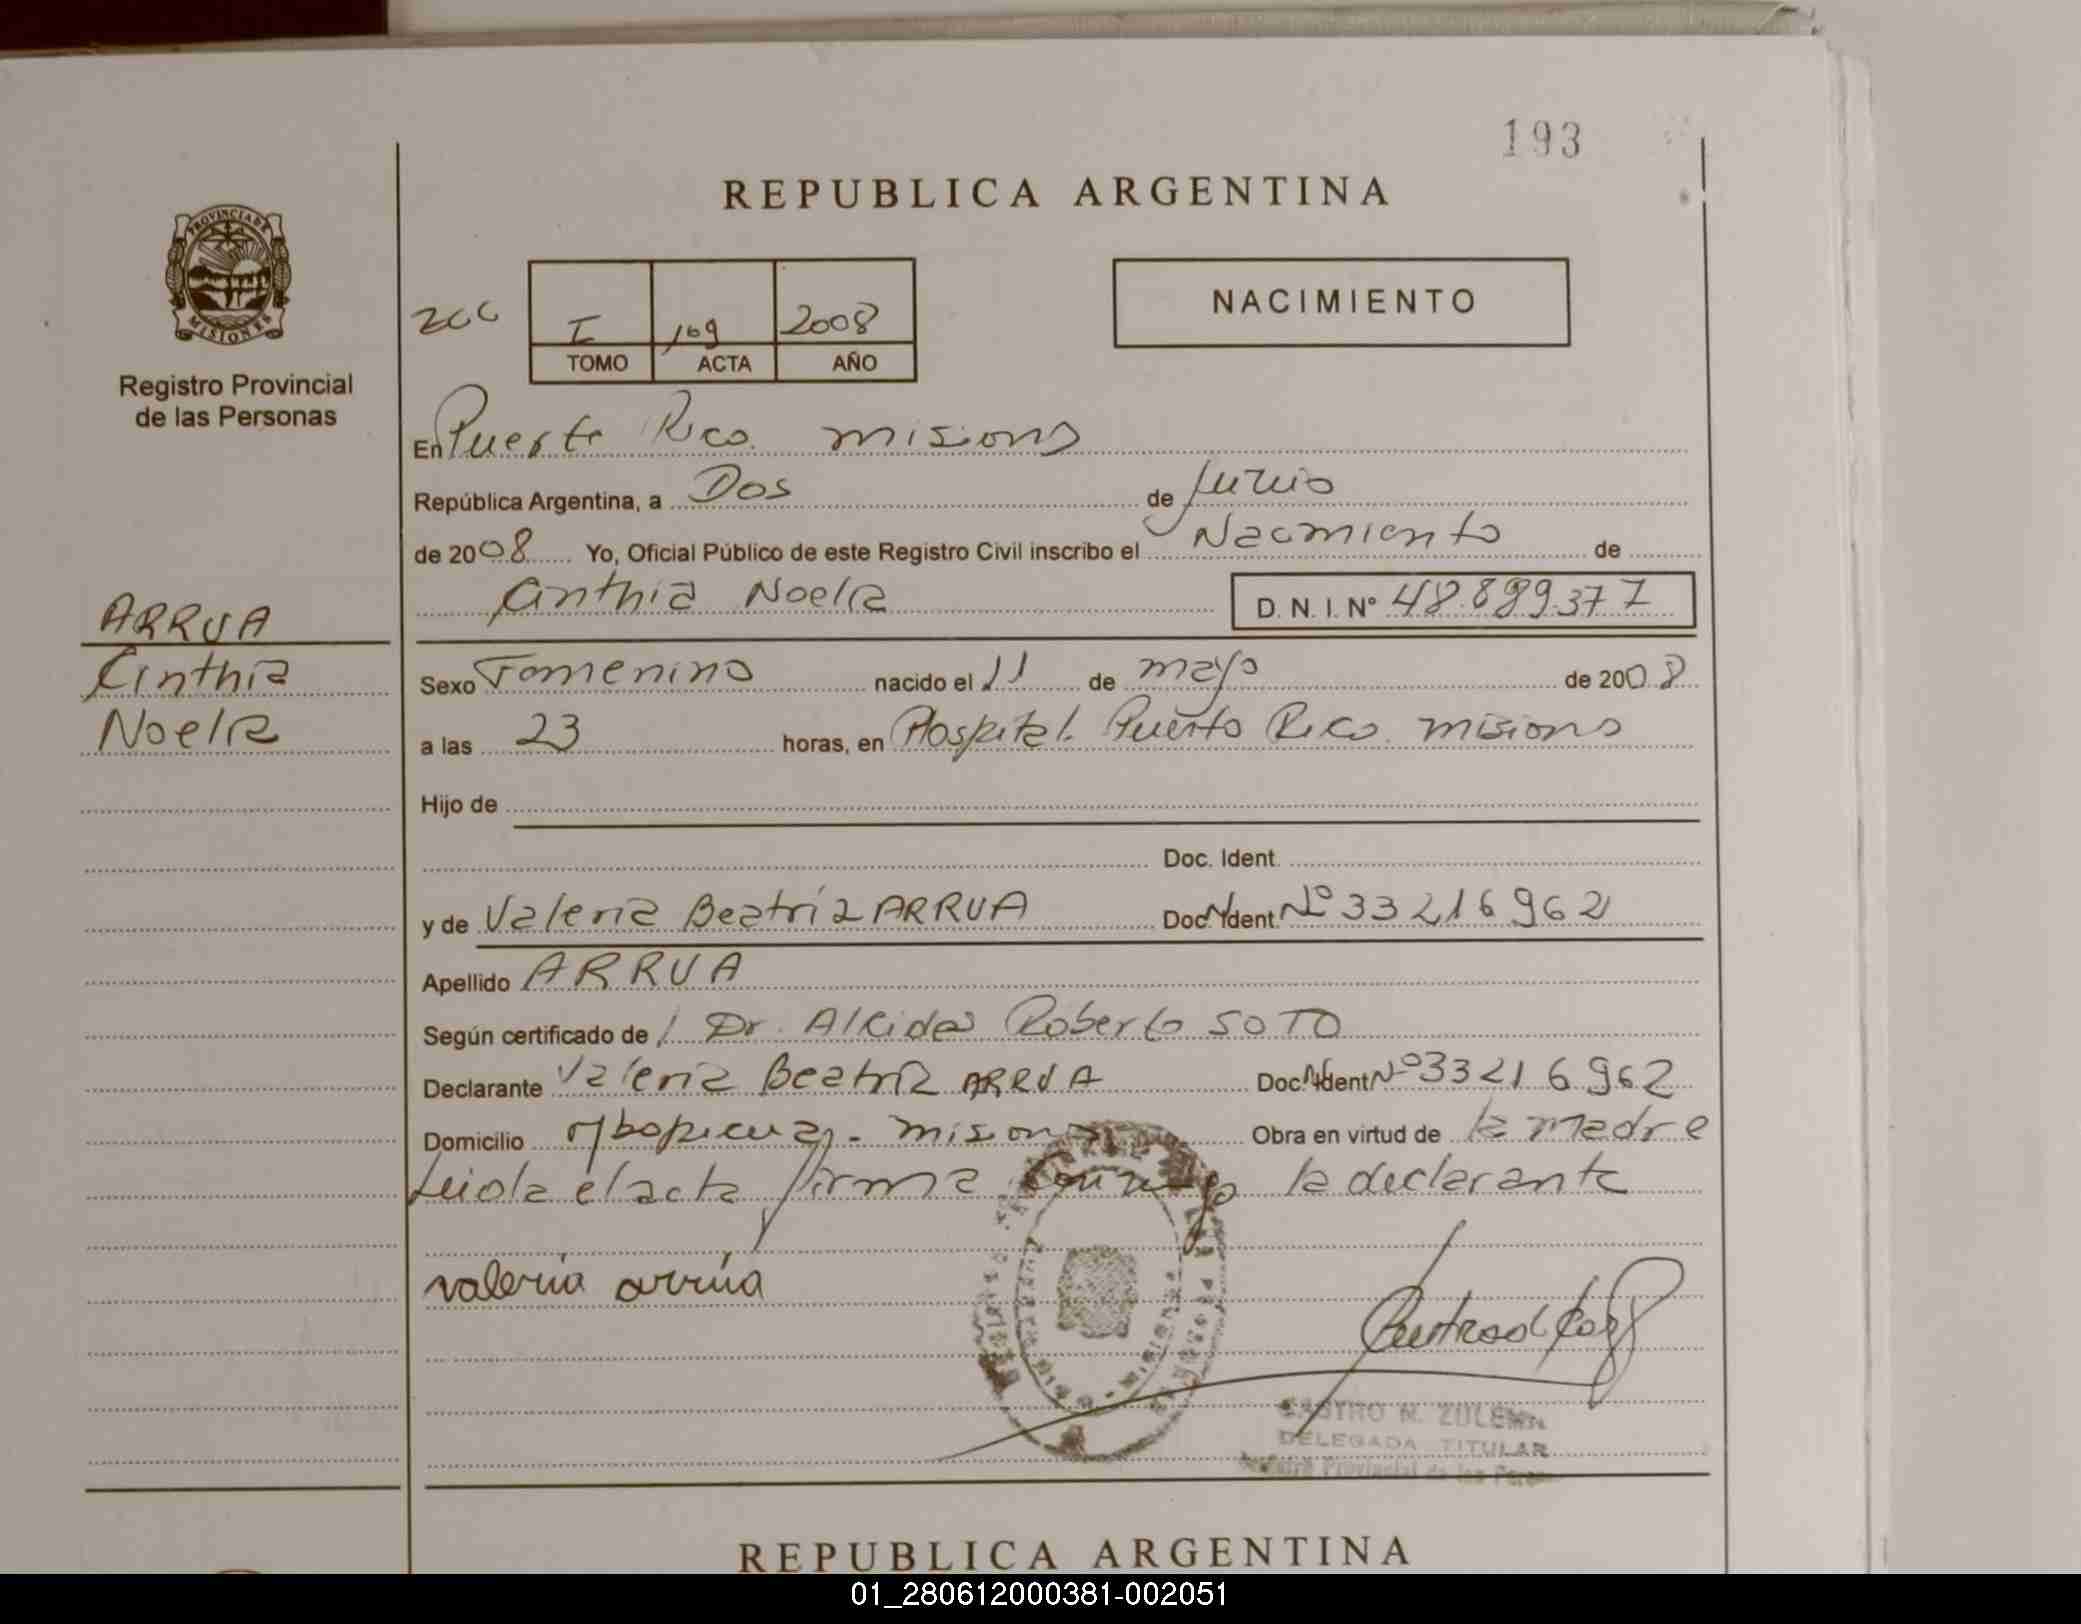 193
REPUBLICA ARGENTINA
PROVINCIA DE
MISIONES
Registro Provincial
de las Personas
I 109 2008
TOMO ACTA AÑO
NACIMIENTO
En Puerto Rico. misiones
República Argentina, a Dos de Junio
de 2008 Yo, Oficial Público de este Registro Civil inscribo el Nacimiento de
Cinthia Noelia D.N.I. Nº 48.889.377
ARRUA
Cinthia
Noelia
Sexo Femenino nacido el 11 de mayo de 2008
a las 23 horas, en Hospital. Puerto Rico. misiones
Hijo de
Doc. Ident.
y de Valeria Beatriz ARRUA Doc. Ident. Nº 33216962
Apellido ARRUA
Según certificado de Dr. Alcides Roberto SOTO
Declarante Valeria Beatriz ARRUA Doc. Ident Nº 33216962
Domicilio misiones Obra en virtud de la madre
Leida el acta firma conmigo la declarante
valeria arrúa
CASTRO N. ZULEMA
DELEGADA TITULAR
Registro Provincial de las Personas
REPUBLICA ARGENTINA
01_280612000381-002051